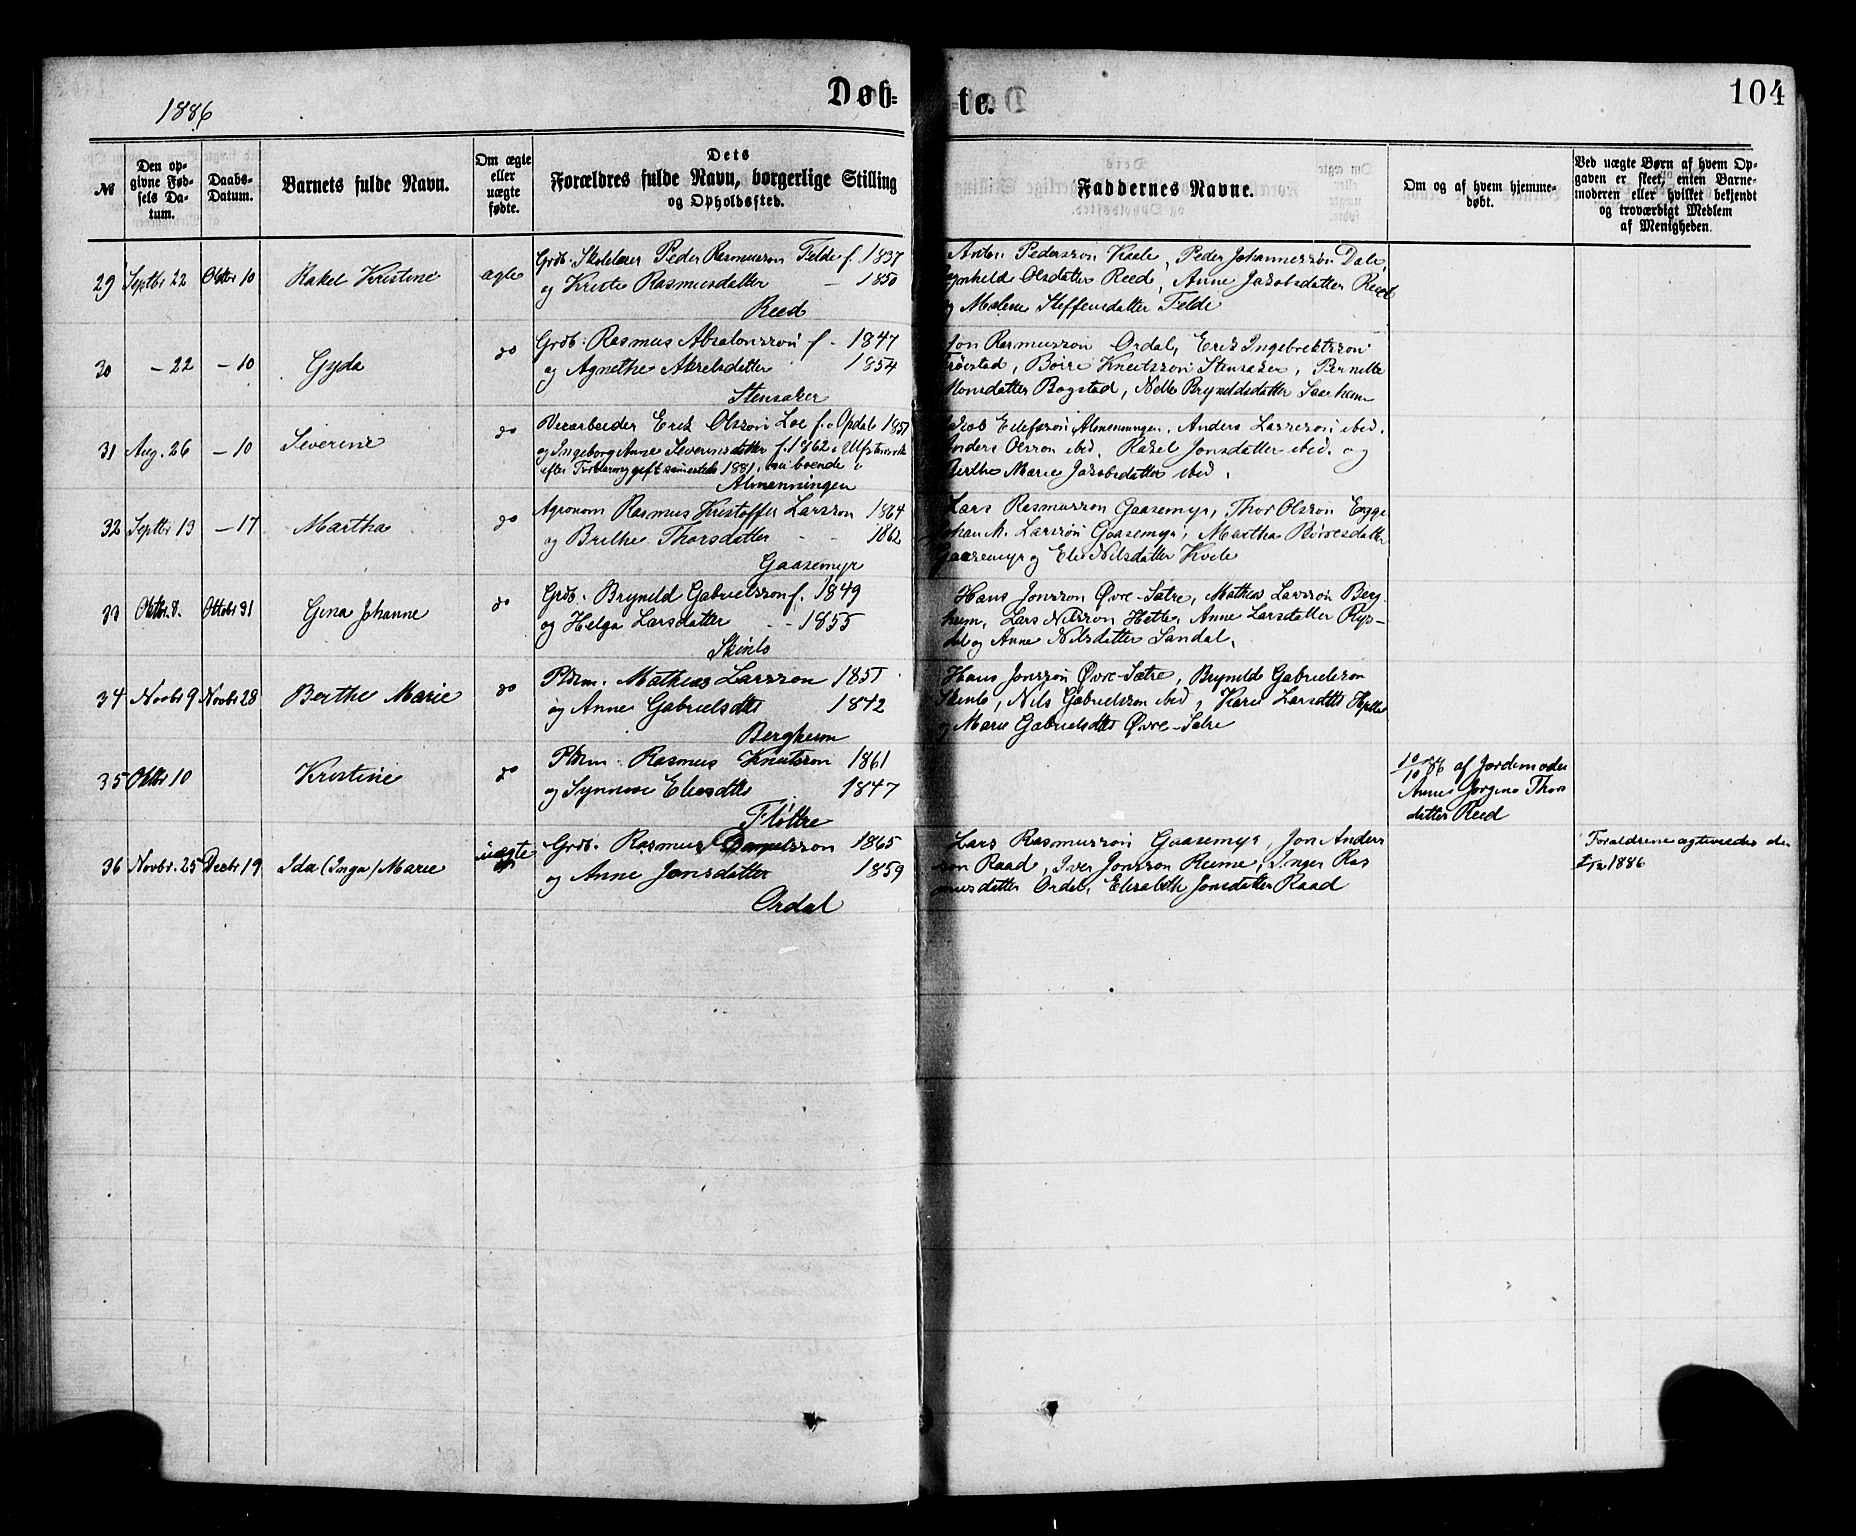 1886
Døb=
te.
104
№
Den op-
givne Fød-
sels Da-
tum.
Daabs-
Datum.
Barnets fulde Navn.
Om ægte
eller
uægte
fødte.
Dets
Forældres fulde Navn, borgerlige Stilling
og Opholdssted.
Faddernes Navne.
Om og af hvem hjemme-
døbt.
Ved uægte Børn af hvem Op-
gaven er skeet, enten Barne-
moderen eller hvilket bekjendt
og troværdigt Medlem
af Menigheden.
29 Septbr 22 Oktbr 10 Rakel Kristine ægte
Grdb. Skolelærer Peder Rasmusson Felde f. 1837
og Kriste Rasmusdatter — 1850
Reed
Anton Pedersson Kaale, Peder Johannesson Dale,
Olsdatter Reed, Anne Jakobsdatter Reed
og Malene Steffensdatter Felde
30 – 22 – 10 Gyda do
Grdb. Rasmus Absalonsson f. 1847
og Agnethe Akselsdatter 1854
Stensaker
Jon Rasmusson Ordal, Erik Ingebrektsson
Bøire Knutsson Stensaker, Pernille
Monsdatter Bogstad, Nille Bryndildsdatter
31 Aug. 26 – 10 Severine do
Veiarbeider Erik Olsson Loe f. i Opdal 1857
og Ingeborg Anne Severinsdatter f. 1862 i Ulfstenvik
efter Forklaring gift sammesteds 1881, nu boende i
Almenningen
Eilefsson Almenningen, Anders Larsson ibid.
Anders Olsson ibid, Rakel Jonsdatter ibid. og
Berthe Marie Jakobsdatter ibid.
32 Septbr 13 – 17 Martha do
Agronom Rasmus Kristoffer Larsson 1864
og Brithe Thorsdatter - - 1862
Gaasemyr
Lars Rasmusson Gaasemyr, Thor Olsson Egge
Johan M. Larsson Gaasemyr, Martha Børresdatter
Gaasemyr og Eli Nilsdatter Kvile
33 Oktbr 8. Oktobr 31 Gina Johanne do
Grdb. Brynild Gabrielsson f. 1849
og Helga Larsdatter - - 1855
Skinlo
Hans Jonsson Øvre-Sætre, Mathias Larsson Berg-
heim, Lars Nilsson Hetle, Anne Larsdatter Rys-
dal og Anne Nilsdatter Sandal.
34 Novbr 9 Novbr 28 Berthe Marie do
Pldsm. Mathias Larsson 1851
og Anne Gabrielsdtr 1842
Bergheim
Hans Jonsson Øvre-Sætre, Brynild Gabrielsson
Skinlo, Nils Gabrielsson ibid, Kari Larsdtr
og Marie Gabrielsdtr Øvre-Sætre
35 Oktbr 10 Kristine do
Pldsm. Rasmus Knutsson 1861
og Synneve Eliasdtr 1847
Fløttre
10/10 86 af Jordemoder
Anne Jorgine Thors
datter Reed
36 Novbr. 25 Decbr 19 Ida (Inga) Marie uægte
Grdb. Rasmus Danielsson 1865
og Anne Jonsdatter 1859
Ordal
Lars Rasmusson Gaasemyr, Jon Anders
son Raad, Iver Jonsson Heime, Inger Ras
musdatter Ordal, Elisabeth Jonsdatter Raad
Forældrene ægteviedes den
1886